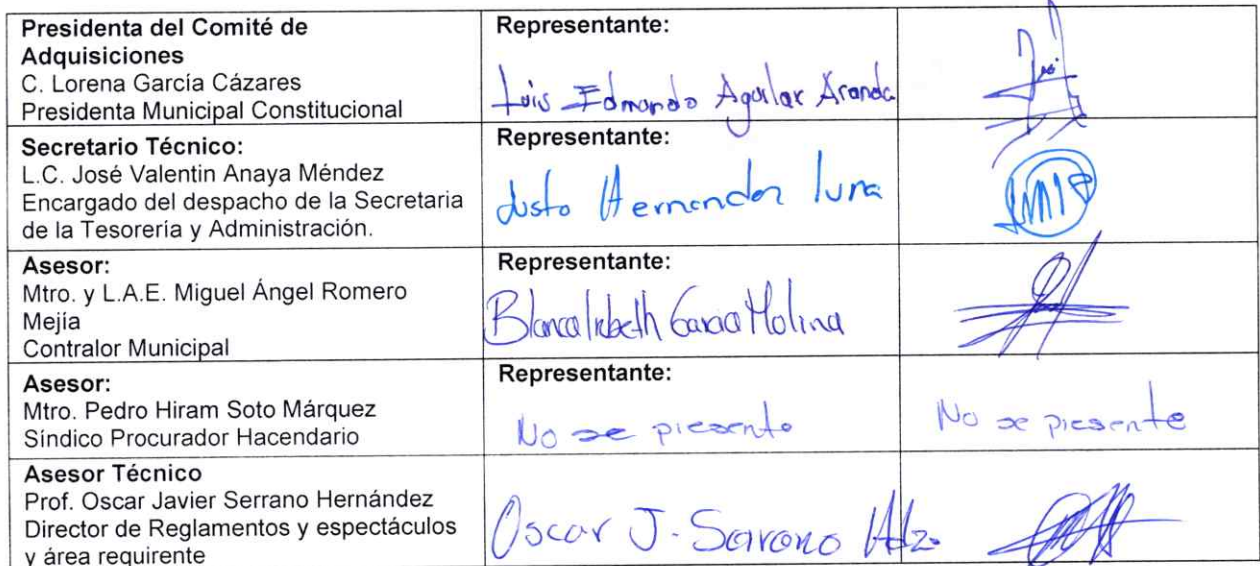 Presidenta del Comité de
Adquisiciones
C. Lorena García Cázares
Presidenta Municipal Constitucional
Representante:
Luis Edmondo Aguilar Aranda
Secretario Técnico:
L.C. José Valentin Anaya Méndez
Encargado del despacho de la Secretaria
de la Tesorería y Administración.
Representante:
Justo Hernandez luna
Asesor:
Mtro. y L.A.E. Miguel Ángel Romero
Mejía
Contralor Municipal
Representante:
Blanca García Molina
Asesor:
Mtro. Pedro Hiram Soto Márquez
Síndico Procurador Hacendario
Representante:
No se presento
No se presento
Asesor Técnico
Prof. Oscar Javier Serrano Hernández
Director de Reglamentos y espectáculos
y área requirente
Oscar J. Serrano Hdz.